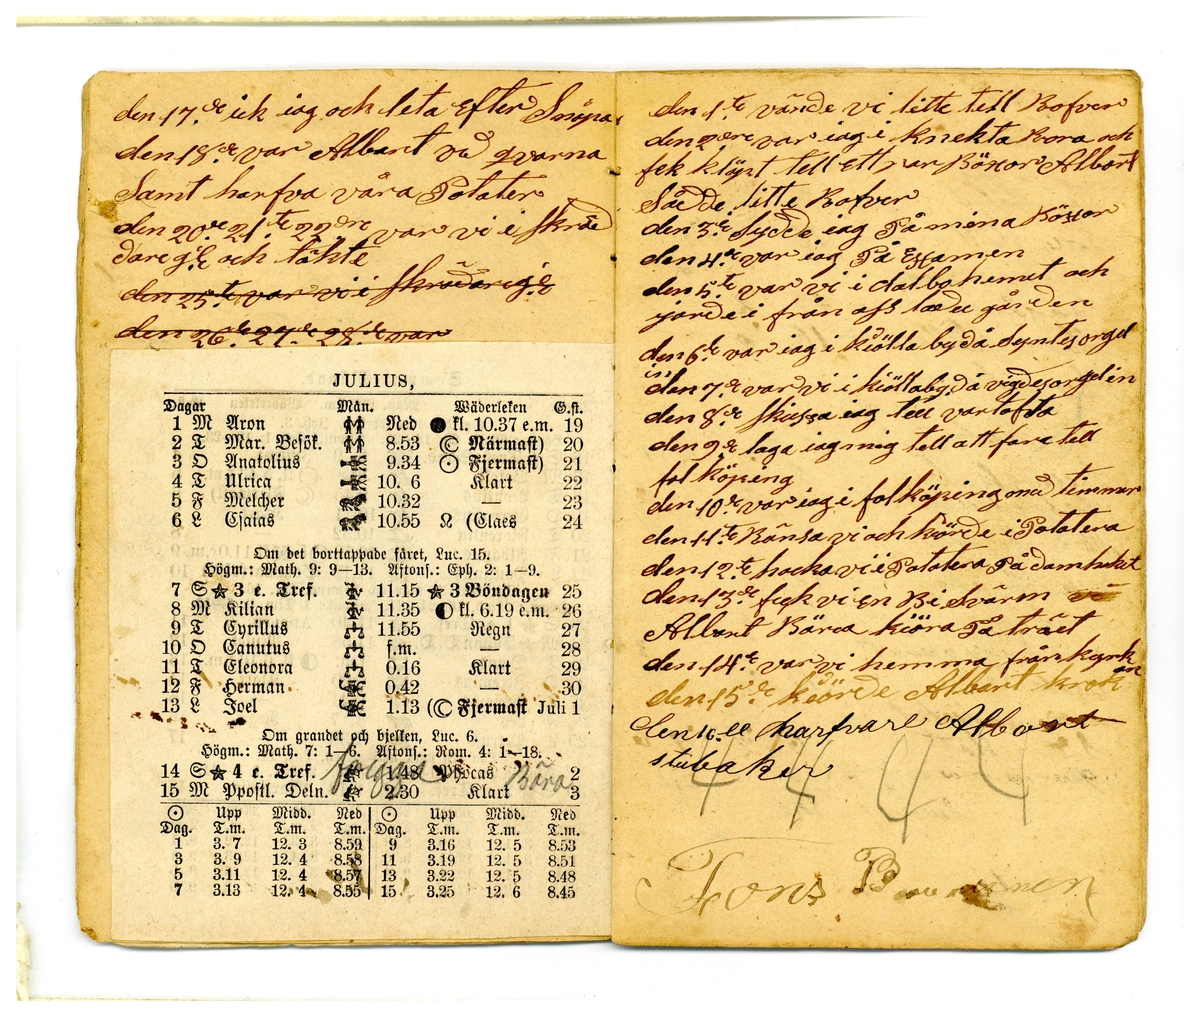 den 17de ick iag och leta Efter Snöpa
den 18de var Albart vid qvarna
Samt harfva våra Potater
den 20de 21te 22dre var vi i skräd
daregil och täkte
den 25te var vi i skrädaregil
den 26te 27de 28de var
JULIUS,
Dagar Mån. Wäderleken G.st.
1 M Aron Ned ● kl. 10.37 e.m. 19
2 T Mar. Besök. 8.53 (☾ Närmast) 20
3 O Anatolius 9.34 (☉ Fjermast) 21
4 T Ulrica 10. 6 Klart 22
5 F Melcher 10.32 — 23
6 L Esaias 10.55 ☊ (Claes 24
Om det borttappade fåret, Luc. 15.
Högm.: Math. 9: 9—13. Aftons.: Eph. 2: 1—9.
7 S ★ 3 e. Tref. 11.15 ★ 3 Böndagen 25
8 M Kilian 11.35 ◐ kl. 6.19 e.m. 26
9 T Cyrillus 11.55 Regn 27
10 O Canutus f.m. — 28
11 T Eleonora 0.16 Klart 29
12 F Herman 0.42 — 30
13 L Joel 1.13 (☾ Fjermast Juli 1
Om grandet och bjelken, Luc. 6.
Högm.: Math. 7: 1—6. Aftons.: Rom. 4: 1—18.
14 S ★ 4 e. Tref. 1.48 Phocas 2
15 M Apostl. Deln. 2.30 Klart 3
Bära
☉ Upp Midd. Ned ☉ Upp Midd. Ned
Dag. T.m. T.m. T.m. Dag. T.m. T.m. T.m.
1 3. 7 12. 3 8.59 9 3.16 12. 5 8.53
3 3. 9 12. 4 8.58 11 3.19 12. 5 8.51
5 3.11 12. 4 8.57 13 3.22 12. 5 8.48
7 3.13 12. 4 8.55 15 3.25 12. 6 8.45
den 1te vände vi litte till Rofver
den 2dre var iag i knekta Bora och
fek klöpt tell Ett par Böxor Albart
Sådde litte Rofver
den 3de Sydde iag På mina Böxor
den 4de var iag På Exsamen
den 5te var vi i dalbohemet och
jorde i från
den 6te var iag i kiölla by då syntes orgel
in
den 7de var vi i kiöllaby då vigdes orgel in
den 8de skussa iag tell vartofta
den 9de laga iag mig tell att fara tell
fol köping
den 10de var iag i folköping med timmer
den 11te Ränsa vi och körde i Potatera
den 12te hacka vi i Potatera På damhuket
den 13de fick vi En Bi Svärm
Albart Börca kiöra På träet
den 14de var vi hemma från kyrk
an
den 15de kiörde Albart krok
den 16de harfvare Albart
stubaker
4 4 4 7